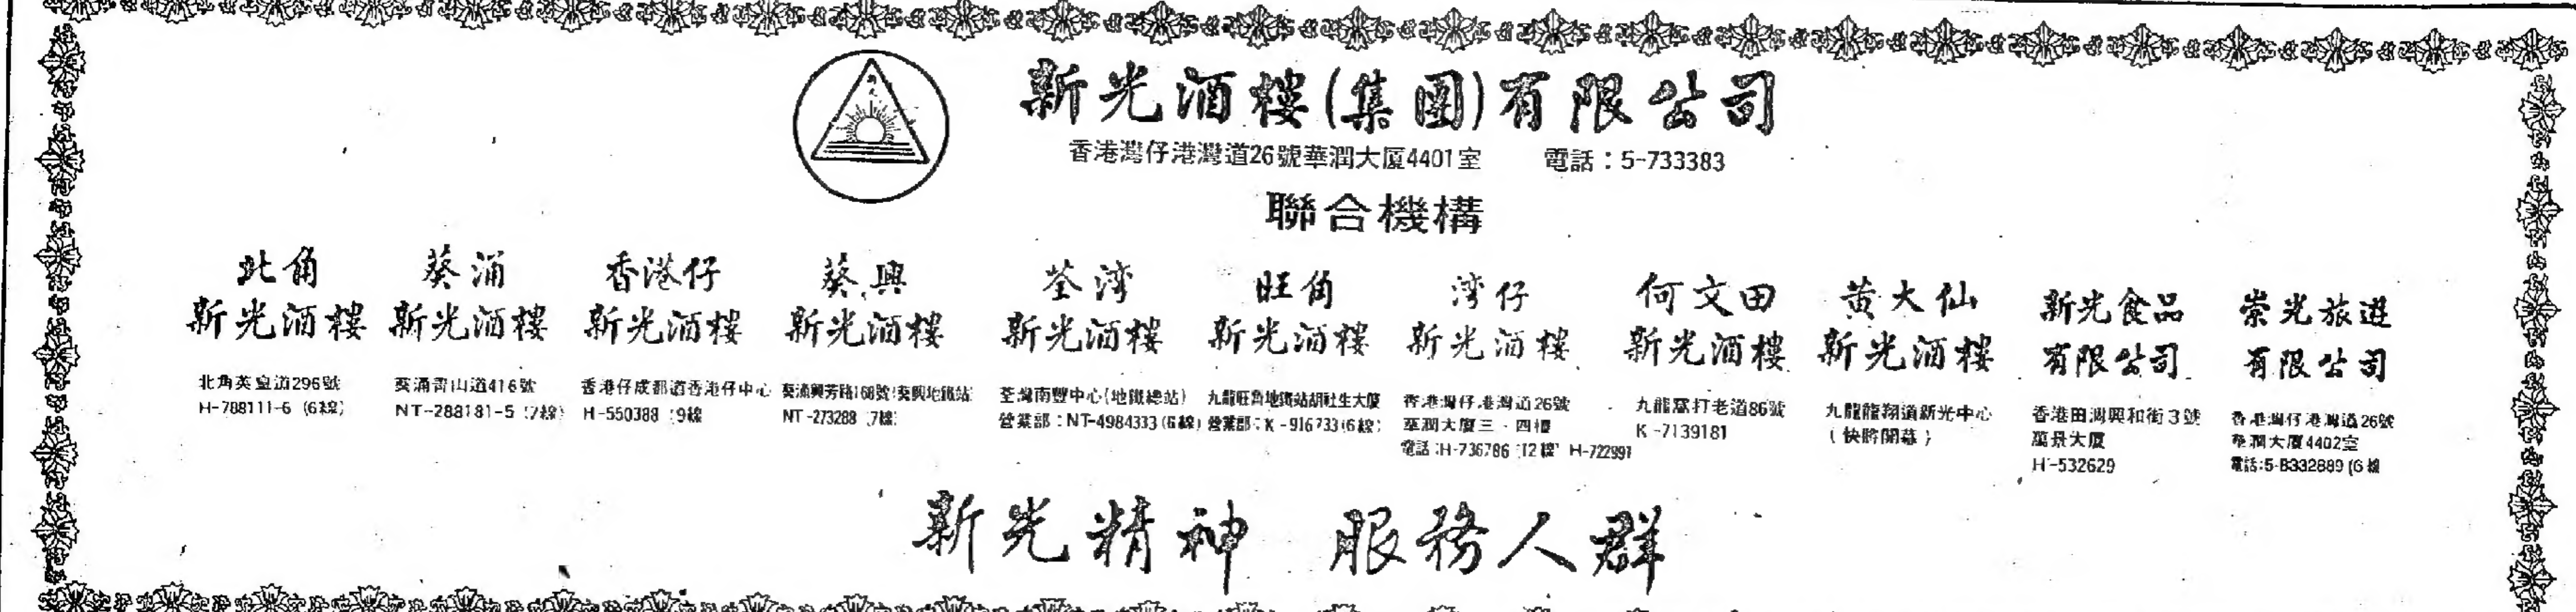 新光酒樓(集團)有限公司
香港灣仔港灣道26號華潤大厦4401室 電話：5-733383
聯合機構
北角
新光酒樓
北角英皇道296號
H-788111-6 (6線)
葵涌
新光酒樓
葵涌青山道416號
NT-288181-5 (7線)
香港仔
新光酒樓
香港仔成都道香港仔中心
H-550388 (9線
葵興
新光酒樓
葵涌興芳路168號(葵興地鐵站)
NT-273288 (7線)
荃湾
新光酒樓
荃灣南豐中心(地鐵總站)
營業部：NT-4984333 (6線)
旺角
新光酒樓
九龍旺角地鐵站胡社生大厦
營業部：K-916733 (6線)
湾仔
新光酒樓
香港灣仔港灣道26號
華潤大厦三・四樓
電話：H-736786 (12線) H-722991
何文田
新光酒樓
九龍窩打老道86號
K-7139181
黄大仙
新光酒樓
九龍龍翔道新光中心
(快將開幕)
新光食品
有限公司
香港田灣興和街3號
萬景大厦
H-532629
崇光旅遊
有限公司
香港灣仔港灣道26號
華潤大厦4402室
電話：5-8332889 (6線
新光精神 服務人群